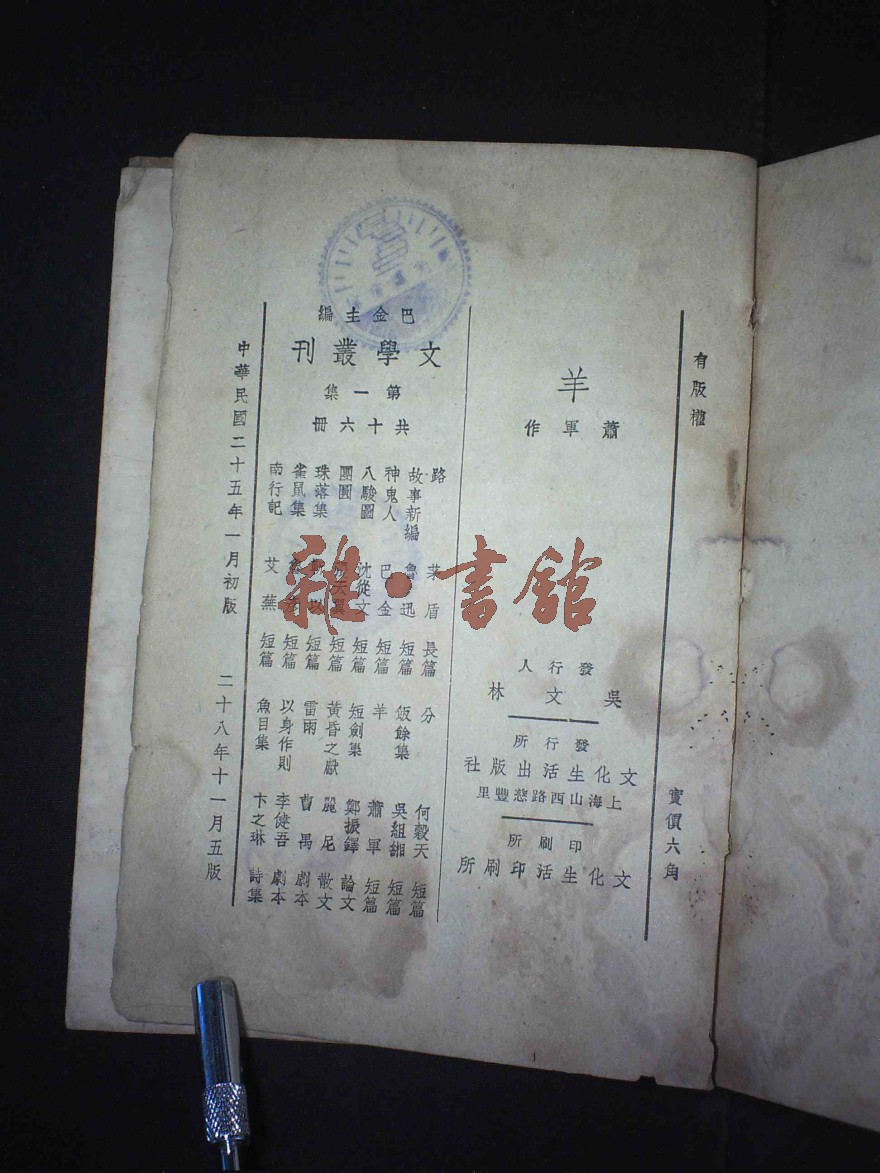 有版權 實價六角
羊
蕭軍作
發行人
吳文林
發行所
文化生活出版社
上海山西路慈豐里
印刷所
文化生活印刷所
巴金主編
文學叢刊
第一集
共十六冊
路 茅盾 長篇 分 何穀天 短篇
故事新編 魯迅 短篇 飯餘集 吳組緗 短篇
神鬼人 巴金 短篇 羊 蕭軍 短篇
八駿圖 沈從文 短篇 短劍集 鄭振鐸 論文
團圓 天翼 短篇 黃昏之獻 麗尼 散文
珠落集 以 短篇 雷雨 曹禺 劇本
雀鼠集 短篇 以身作則 李健吾 劇本
南行記 艾蕪 短篇 魚目集 卞之琳 詩集
中華民國二十五年一月初版 二十八年十一月五版
雜·書館